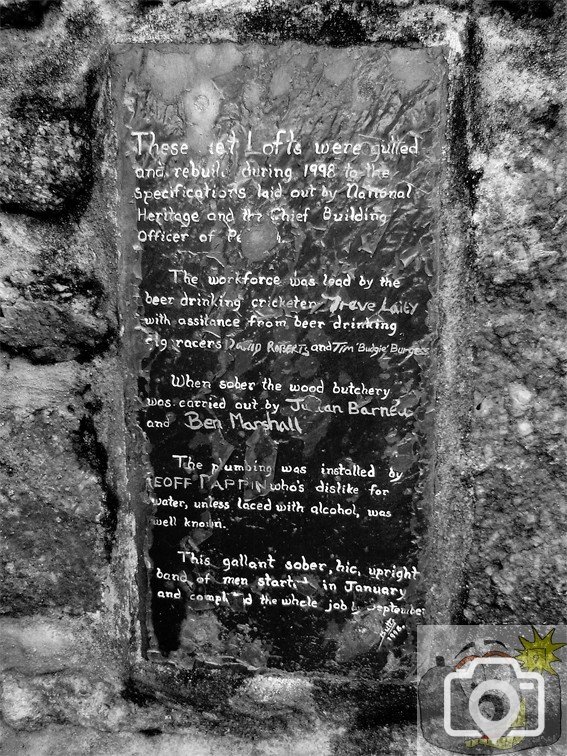 These Lofts were gutted
and rebuilt during 1998 to the
specifications laid out by National
Heritage and the Chief Building
Officer of
The workforce was lead by the
beer drinking cricketer Treve Laity
with assitance from beer drinking
gig racers David Roberts and Tim 'Budgie' Burgess
When sober the wood butchery
was carried out by Julian Barnes
and Ben Marshall
The plumbing was installed by
GEOFF TAPPIN who's dislike for
water, unless laced with alcohol, was
well known.
This gallant sober, hic, upright
band of men started in January
and completed the whole job by September
1998.